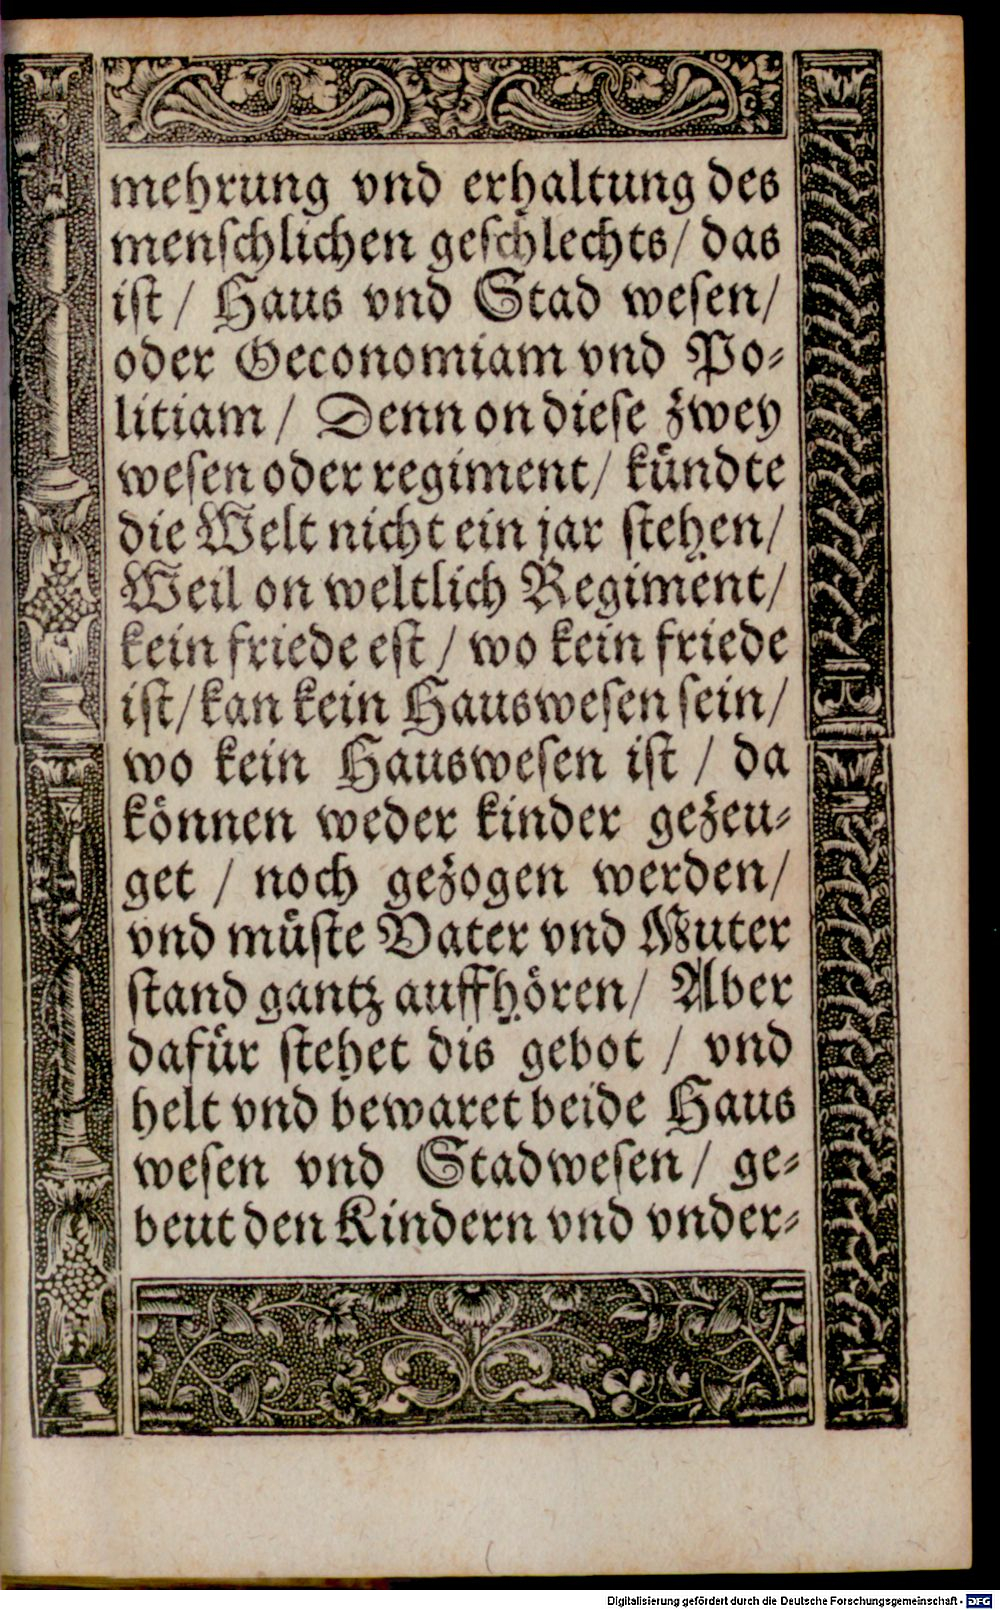 mehrung vnd erhaltung des
menſchlichen geſchlechts/ das
iſt / Haus vnd Stad weſen/
oder Oeconomiam vnd Po⸗
litiam / Denn on dieſe zwey
weſen oder regiment/ kündte
die Welt nicht ein jar ſtehen/
Weil on weltlich Regiment/
kein friede eſt / wo kein friede
iſt/ kan kein Hausweſen ſein/
wo kein Hausweſen iſt / da
können weder kinder gezeu⸗
get / noch gezogen werden/
vnd müſte Vater vnd Muter
ſtand gantz auffhören/ Aber
dafür ſtehet dis gebot / vnd
helt vnd bewaret beide Haus
weſen vnd Stadweſen/ ge⸗
beut den Kindern vnd vnder⸗
Digitalisierung gefördert durch die Deutsche Forschungsgemeinschaft - DFG